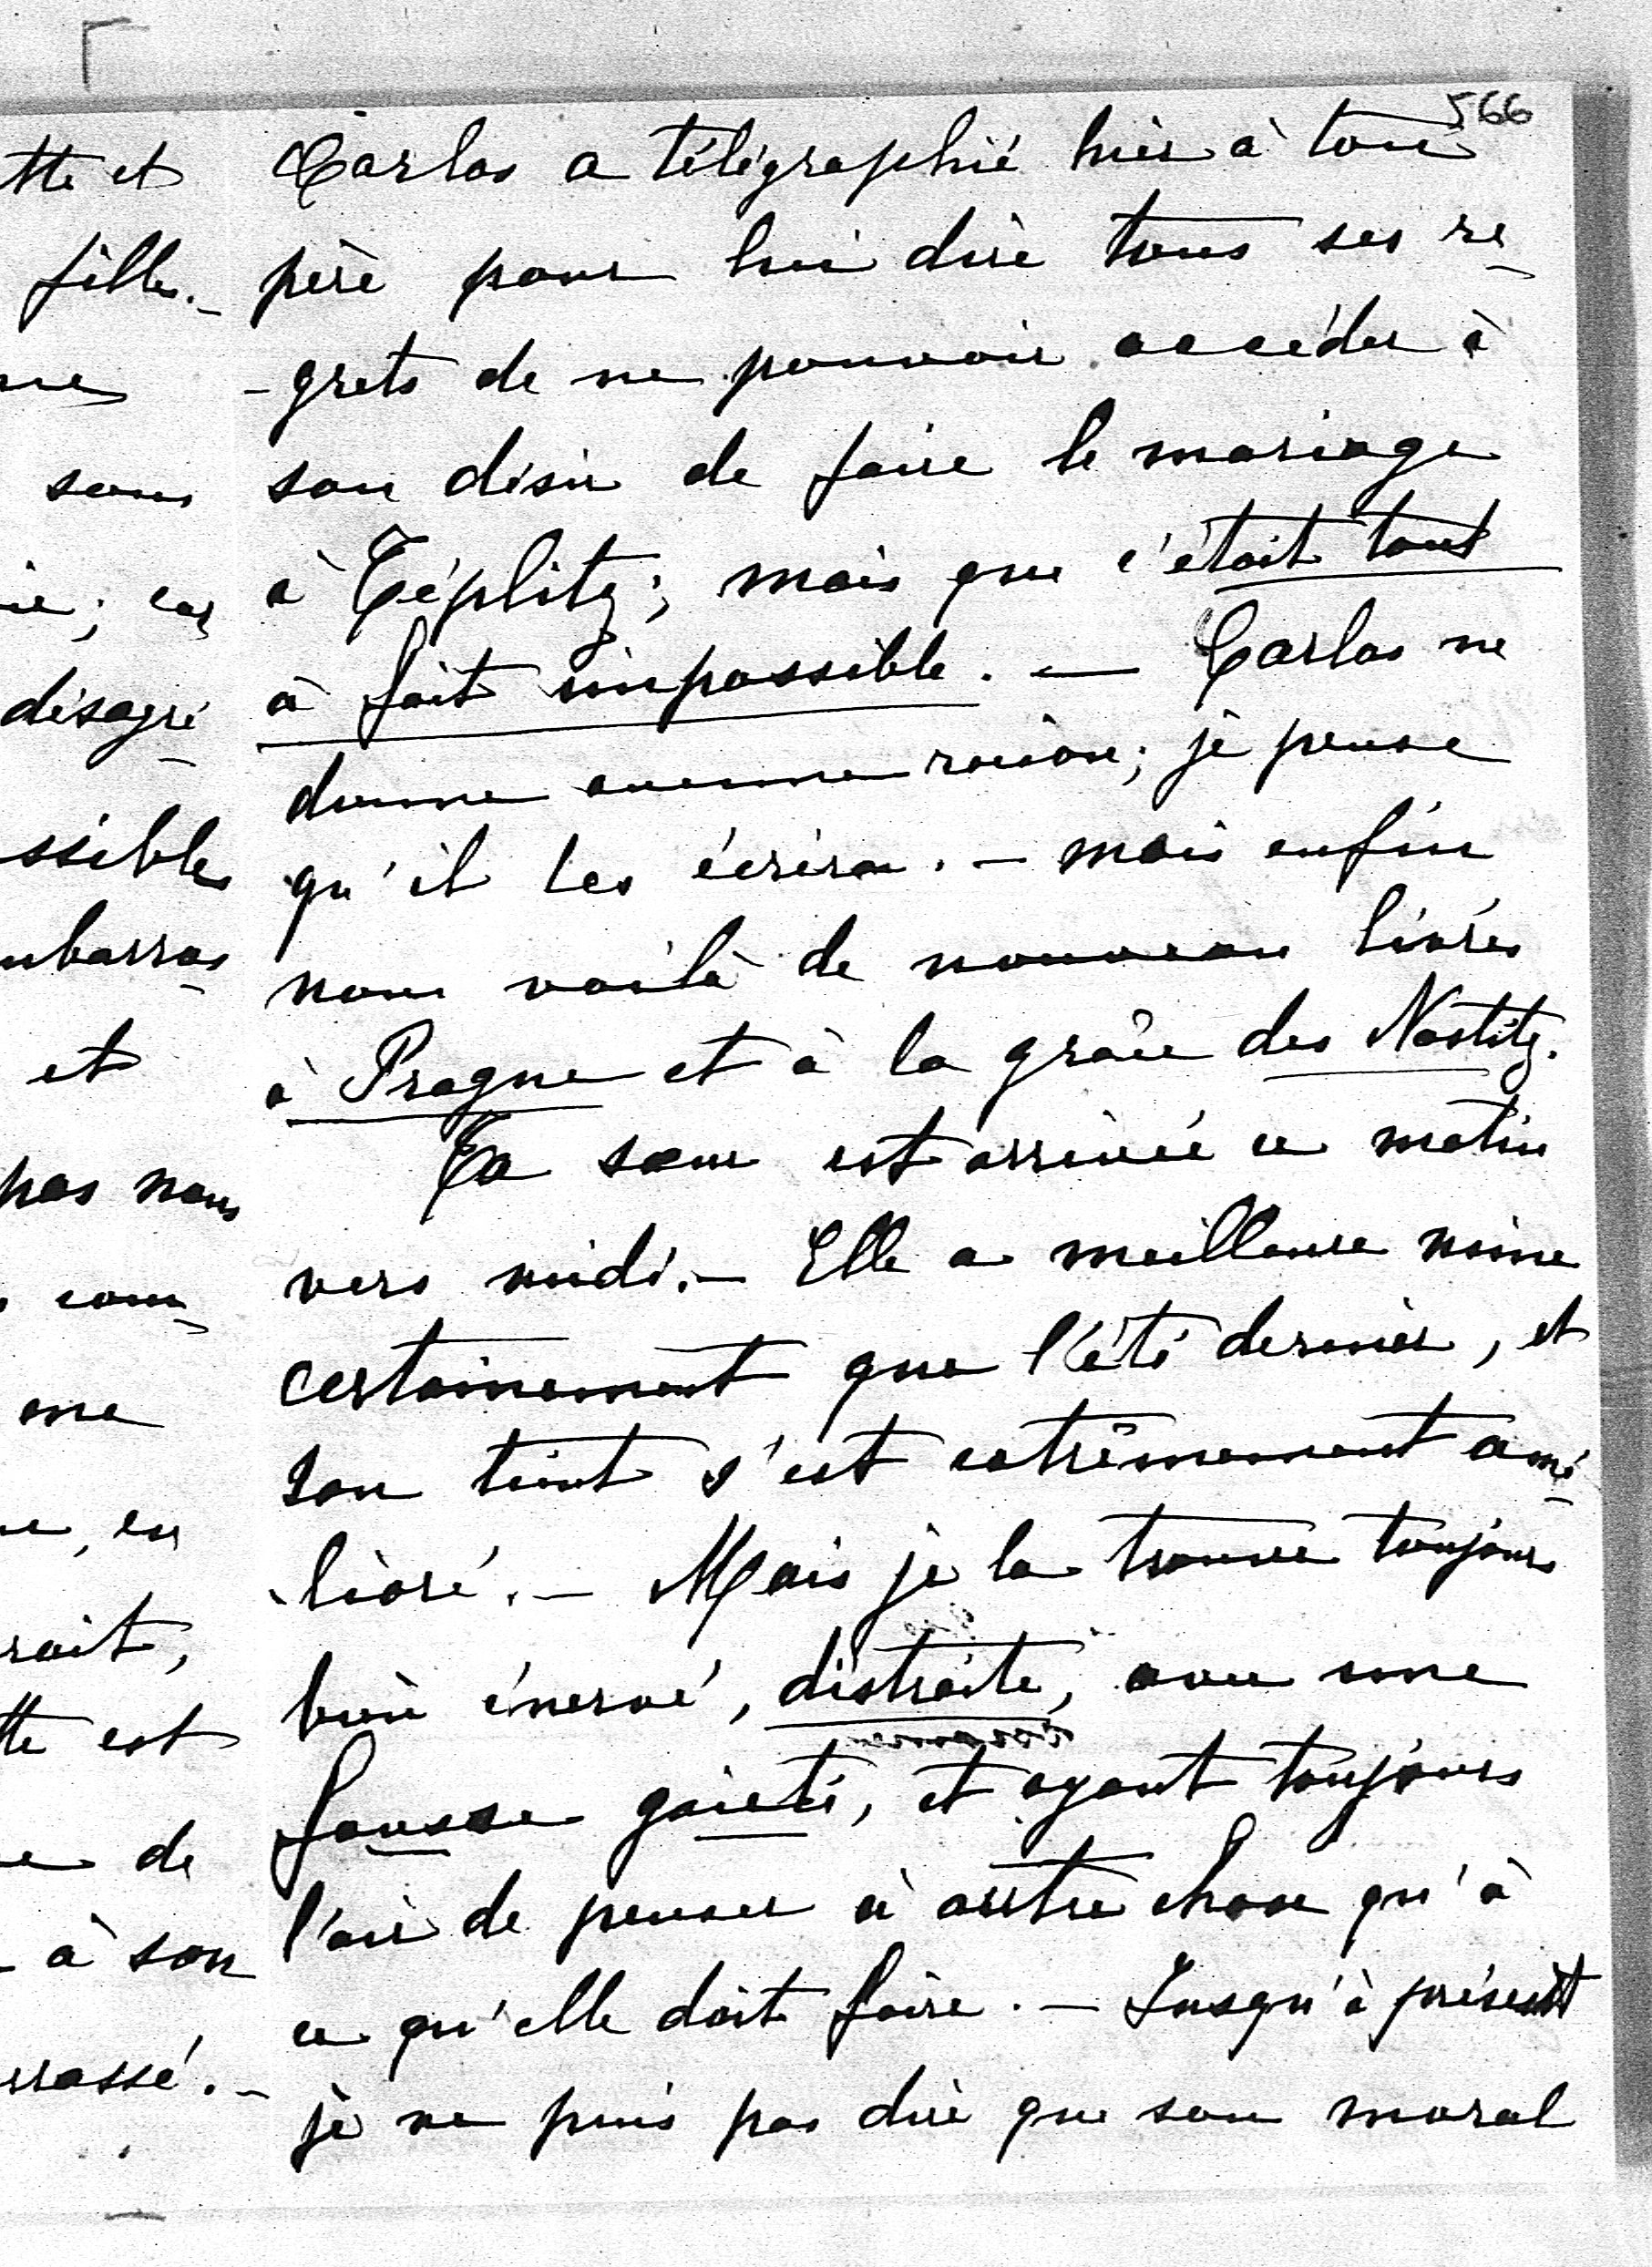 566
Carlos a télégraphié hier à ton
père pour lui dire tous ses re_
_grets de ne pouvoir accéder à
son désir de faire le mariage
à Téplitz; mais que c'était tout
à fait impossible. — Carlos ne
donne aucune raison; je pense
qu'il les écrira. — mais enfin
nous voilà de nouveau livrés
à Prague et à la grâce des Nostitz.
Ta sœur est arrivée ce matin
vers midi. — Elle a meilleure mine
certainement que l'été dernier, et
son teint s'est extrêmement amé_
lioré. — Mais je la trouve toujours
bien énervé, distraite, avec une
fausse gaieté, et ayant toujours
l'air de penser à autre chose qu'à
ce qu'elle doit faire. — Jusqu'à présent
je ne puis pas dire que son moral
tte et
fille. _
sous
ie; car
désagré_
ssible
mbarras_
et
pas nous
com_
me
en
rait,
tte est
de
à son
rrassé. _